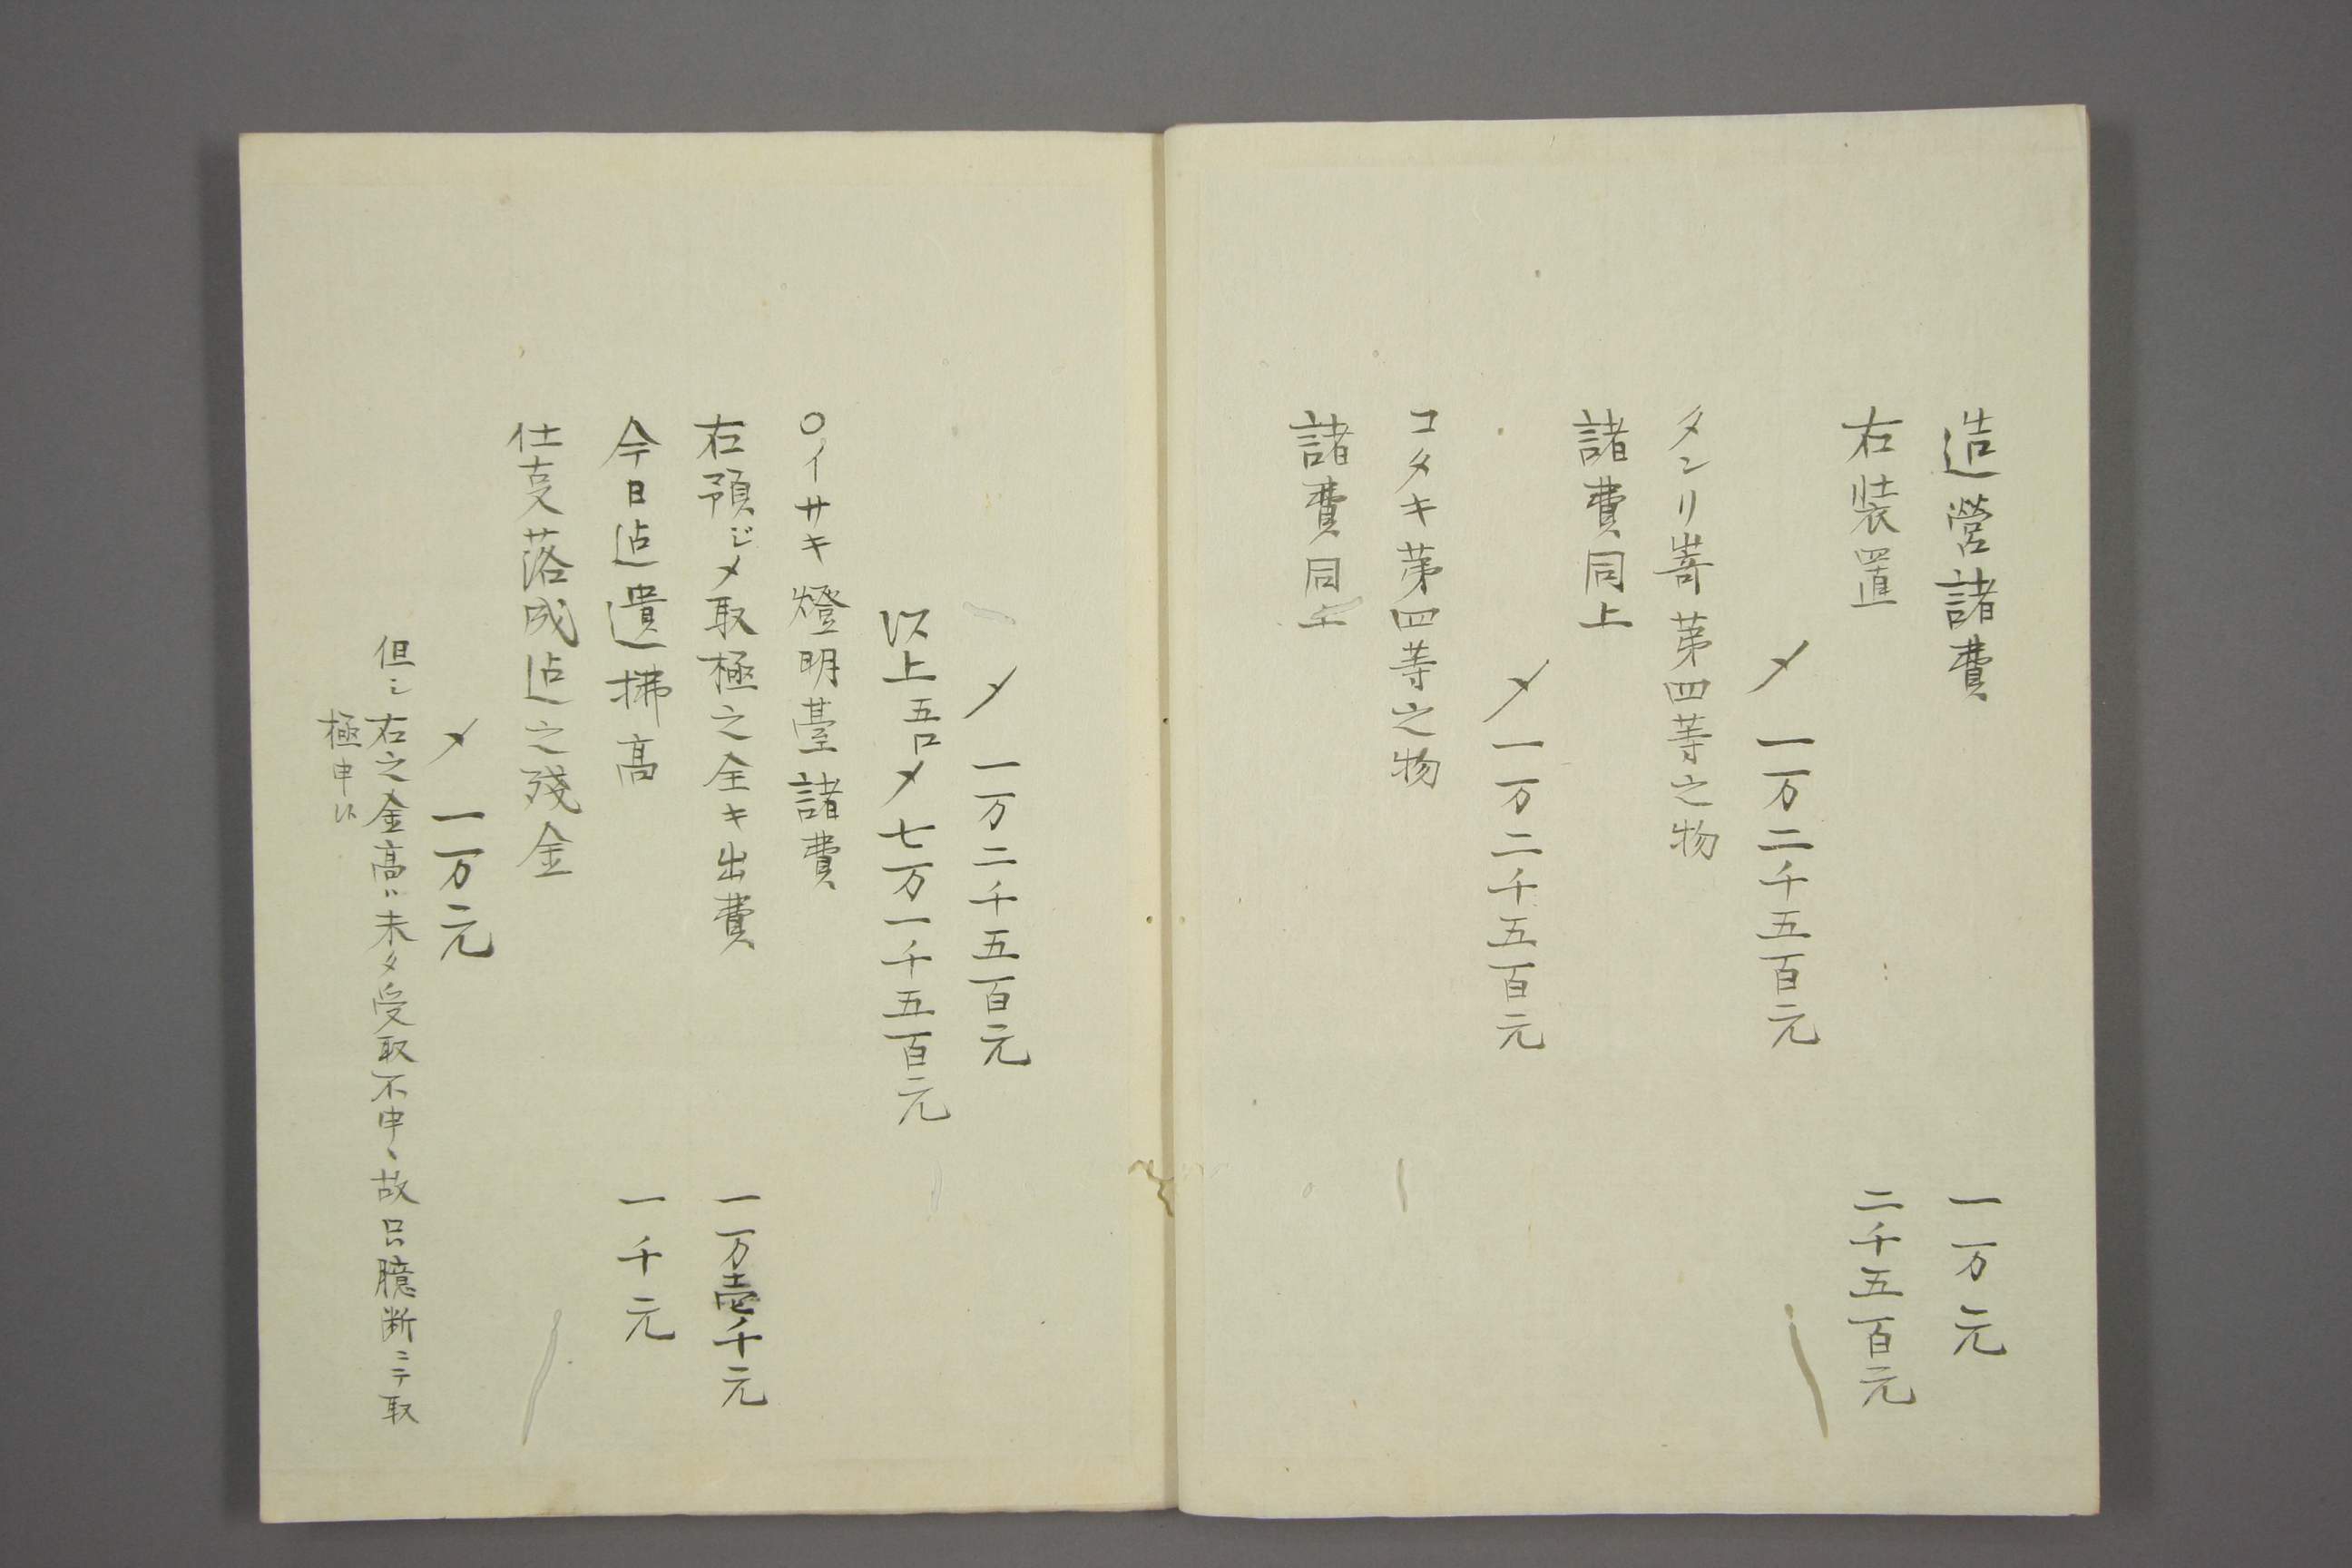 造營諸費　一万元
右装置　二千五百元
〆　一万二千五百元
タンリ嵜　苐四等之物
諸費同上
〆　一万二千五百元
コタキ苐四等之物
諸費同上
〆　一万二千五百元
以上五口〆七万一千五百元
○イサキ燈明臺諸費
右預ジメ取極之全キ出費　一万壱千元
今日迠遣拂高　一千元
仕㕝落成迠之殘金
〆　一万元
但シ右之金高ハ未タ受取不申、故只臆断ニテ取
極申候